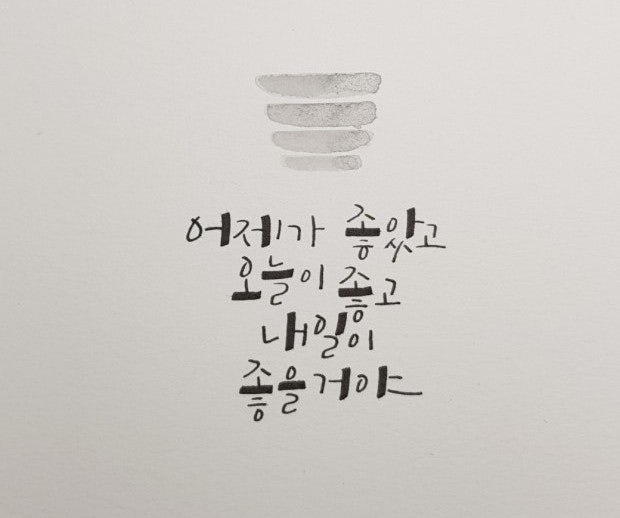 어제가 좋았고
오늘이 좋고
내일이
좋을거야